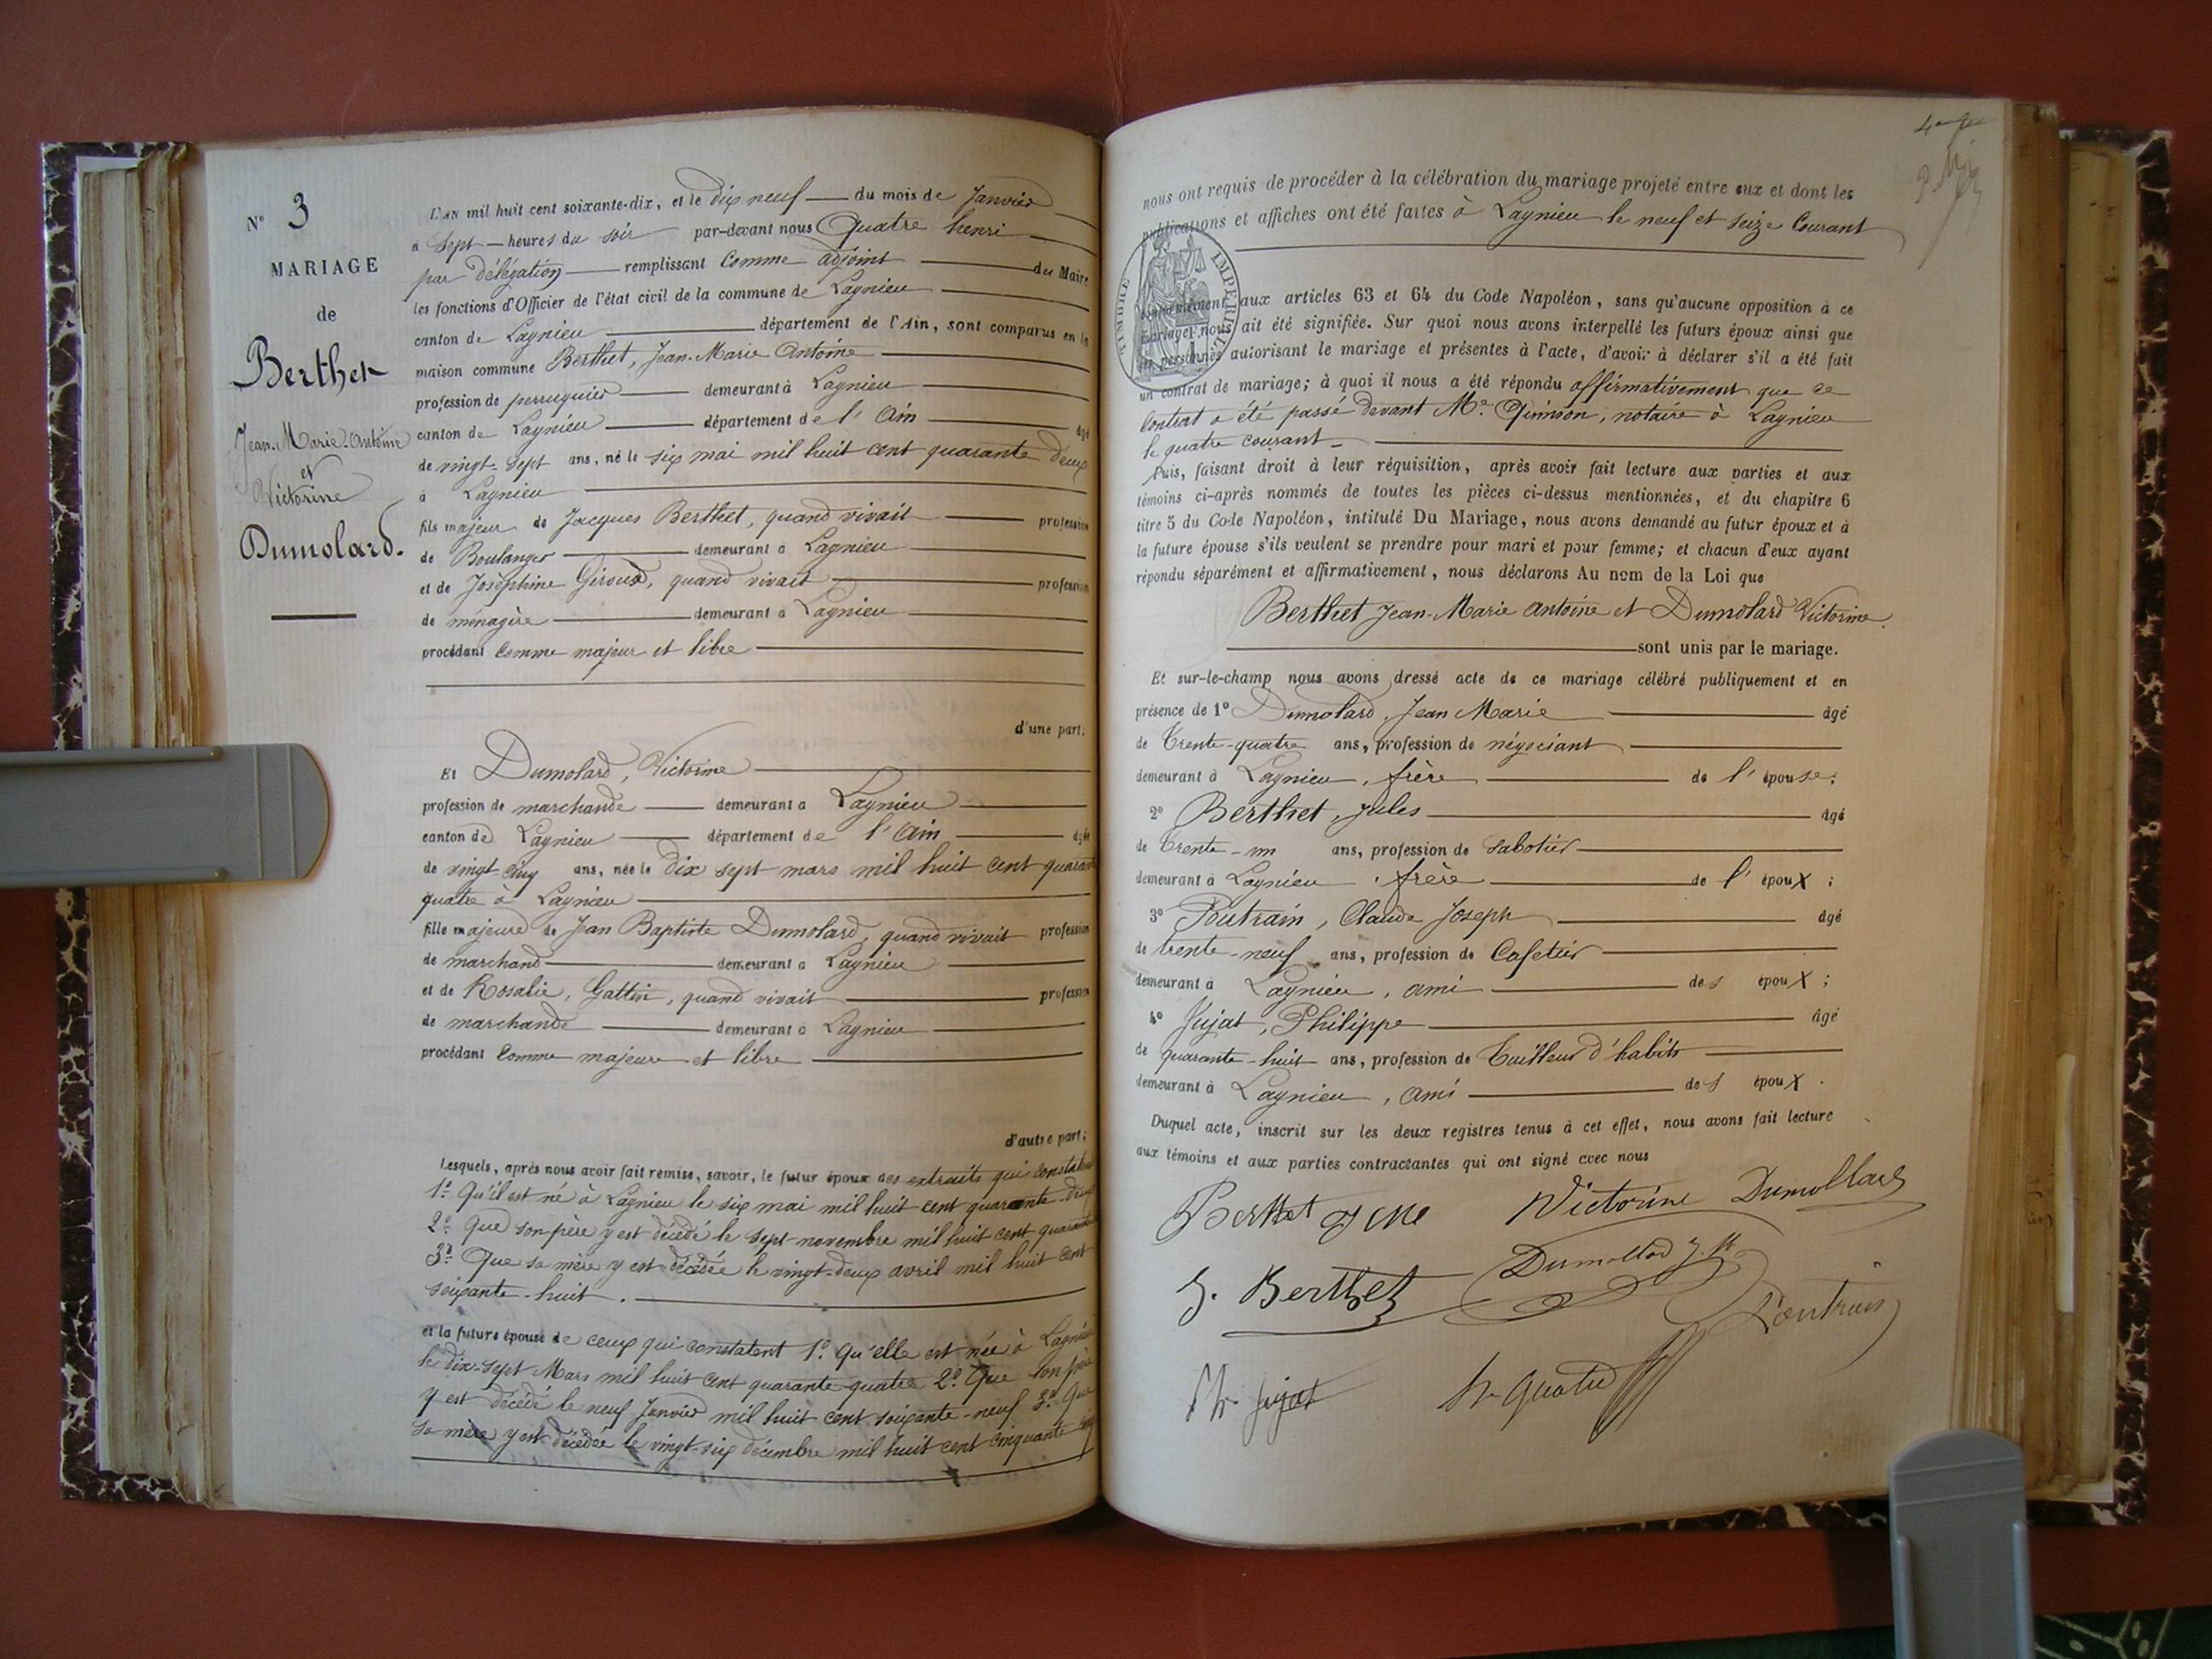 N° 3
MARIAGE
de
Berthet
Jean-Marie-Antoine
et
Victorine
Dumolard.
L'AN mil huit cent soixante-dix, et le dix neuf du mois de Janvier
à Sept heures du soir par-devant nous Quatre henri
par délégation remplissant comme adjoint du Maire
les fonctions d'Officier de l'état civil de la commune de Lagnieu
canton de Lagnieu département de l'Ain, sont comparus en la
maison commune Berthet, Jean-Marie Antoine
profession de perruquier demeurant à Lagnieu
canton de Lagnieu département de l'Ain âgé
de vingt-sept ans, né le six mai mil huit cent quarante deux
à Lagnieu
fils majeur de Jacques Berthet, quand vivait profession
de Boulanger demeurant à Lagnieu
et de Joséphine Giroud, quand vivait profession
de ménagère demeurant à Lagnieu
procédant comme majeur et libre
d'une part;
Et Dumolard, Victorine
profession de marchande demeurant à Lagnieu
canton de Lagnieu département de l'Ain âgée
de vingt cinq ans, née le dix sept mars mil huit cent quarante
quatre à Lagnieu
fille majeure de Jean Baptiste Dumolard, quand vivait profession
de marchand demeurant à Lagnieu
et de Rosalie, Gallin, quand vivait profession
de marchande demeurant à Lagnieu
procédant comme majeure et libre
d'autre part;
Lesquels, après nous avoir fait remise, savoir, le futur époux des extraits qui constatent
1° Qu'il est né à Lagnieu le six mai mil huit cent quarante-deux
2° Que son père y est décédé le sept novembre mil huit cent quarante
3° Que sa mère y est décédée le vingt-deux avril mil huit cent
soixante-huit.
et la future épouse de ceux qui constatent 1° Qu'elle est née à Lagnieu
le dix-sept Mars mil huit cent quarante-quatre 2° Que son père
y est décédé le neuf Janvier mil huit cent soixante-neuf 3° Que
sa mère y est décédée le vingt-six décembre mil huit cent cinquante
nous ont requis de procéder à la célébration du mariage projeté entre eux et dont les
publications et affiches ont été faites à Lagnieu le neuf et seize courant
TIMBRE IMPERIAL
conformément aux articles 63 et 64 du Code Napoléon, sans qu'aucune opposition à ce
mariage nous ait été signifiée. Sur quoi nous avons interpellé les futurs époux ainsi que
les personnes autorisant le mariage et présentes à l'acte, d'avoir à déclarer s'il a été fait
un contrat de mariage; à quoi il nous a été répondu affirmativement que ce
contrat a été passé devant Me Quinson, notaire à Lagnieu
le quatre courant
Puis, faisant droit à leur réquisition, après avoir fait lecture aux parties et aux
témoins ci-après nommés de toutes les pièces ci-dessus mentionnées, et du chapitre 6
titre 5 du Code Napoléon, intitulé Du Mariage, nous avons demandé au futur époux et à
la future épouse s'ils veulent se prendre pour mari et pour femme; et chacun d'eux ayant
répondu séparément et affirmativement, nous déclarons Au nom de la Loi que
Berthet Jean-Marie Antoine et Dumolard Victorine.
sont unis par le mariage.
Et sur-le-champ nous avons dressé acte de ce mariage célébré publiquement et en
présence de 1° Dumolard, Jean Marie âgé
de Trente-quatre ans, profession de négociant
demeurant à Lagnieu, frère de l'épouse;
2° Berthet, Jules âgé
de Trente-un ans, profession de Sabotier
demeurant à Lagnieu, frère de l'époux;
3° Poutrain, Claude Joseph âgé
de trente-neuf ans, profession de Cafetier
demeurant à Lagnieu, ami des époux;
4° Jujat, Philippe âgé
de quarante-huit ans, profession de Tailleur d'habits
demeurant à Lagnieu, ami des époux.
Duquel acte, inscrit sur les deux registres tenus à cet effet, nous avons fait lecture
aux témoins et aux parties contractantes qui ont signé avec nous
Berthet Victorine Dumollard
J. Berthet Dumollard J. M.
Poutrain
Ph. Jujat hri Quatre